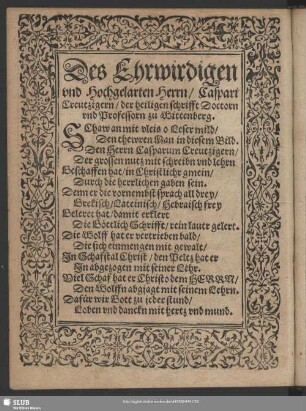 Des Ehrwirdigen
vnd Hochgelarten Herrn / Caspari
Creutzigern / der heiligen schrifft Doctorn
vnd Professorn zu Wittenberg.
SChaw an mit vleis o Leser mild /
Den thewren Man in diesem Bild.
Den Herrn Casparum Creutzigern /
Der grossen nutz mit schreibn vnd lehrn
Geschaffen hat / in Christlichr gmein /
Durch die herrlichen gaben sein.
Denn er die vornembst sprach all drey /
Grekisch / Lateinisch / Hebraisch frey
Geleret hat / damit erklert
Die Göttlich Schrifft / rein lauter gelert.
Die Wölff hat er vertrieben bald /
Die sich einmengen mit gewalt /
In Schafstal Christ / den Peltz hat er
In abgezogen mit seiner Lehr.
Viel Schaf hat er Christo dem HERRN /
Den Wolffn abgjagt mit seinem Lehrn.
Dafür wir Gott zu jeder stund /
Loben vnd danckn mit hertz vnd mund.
SLUB